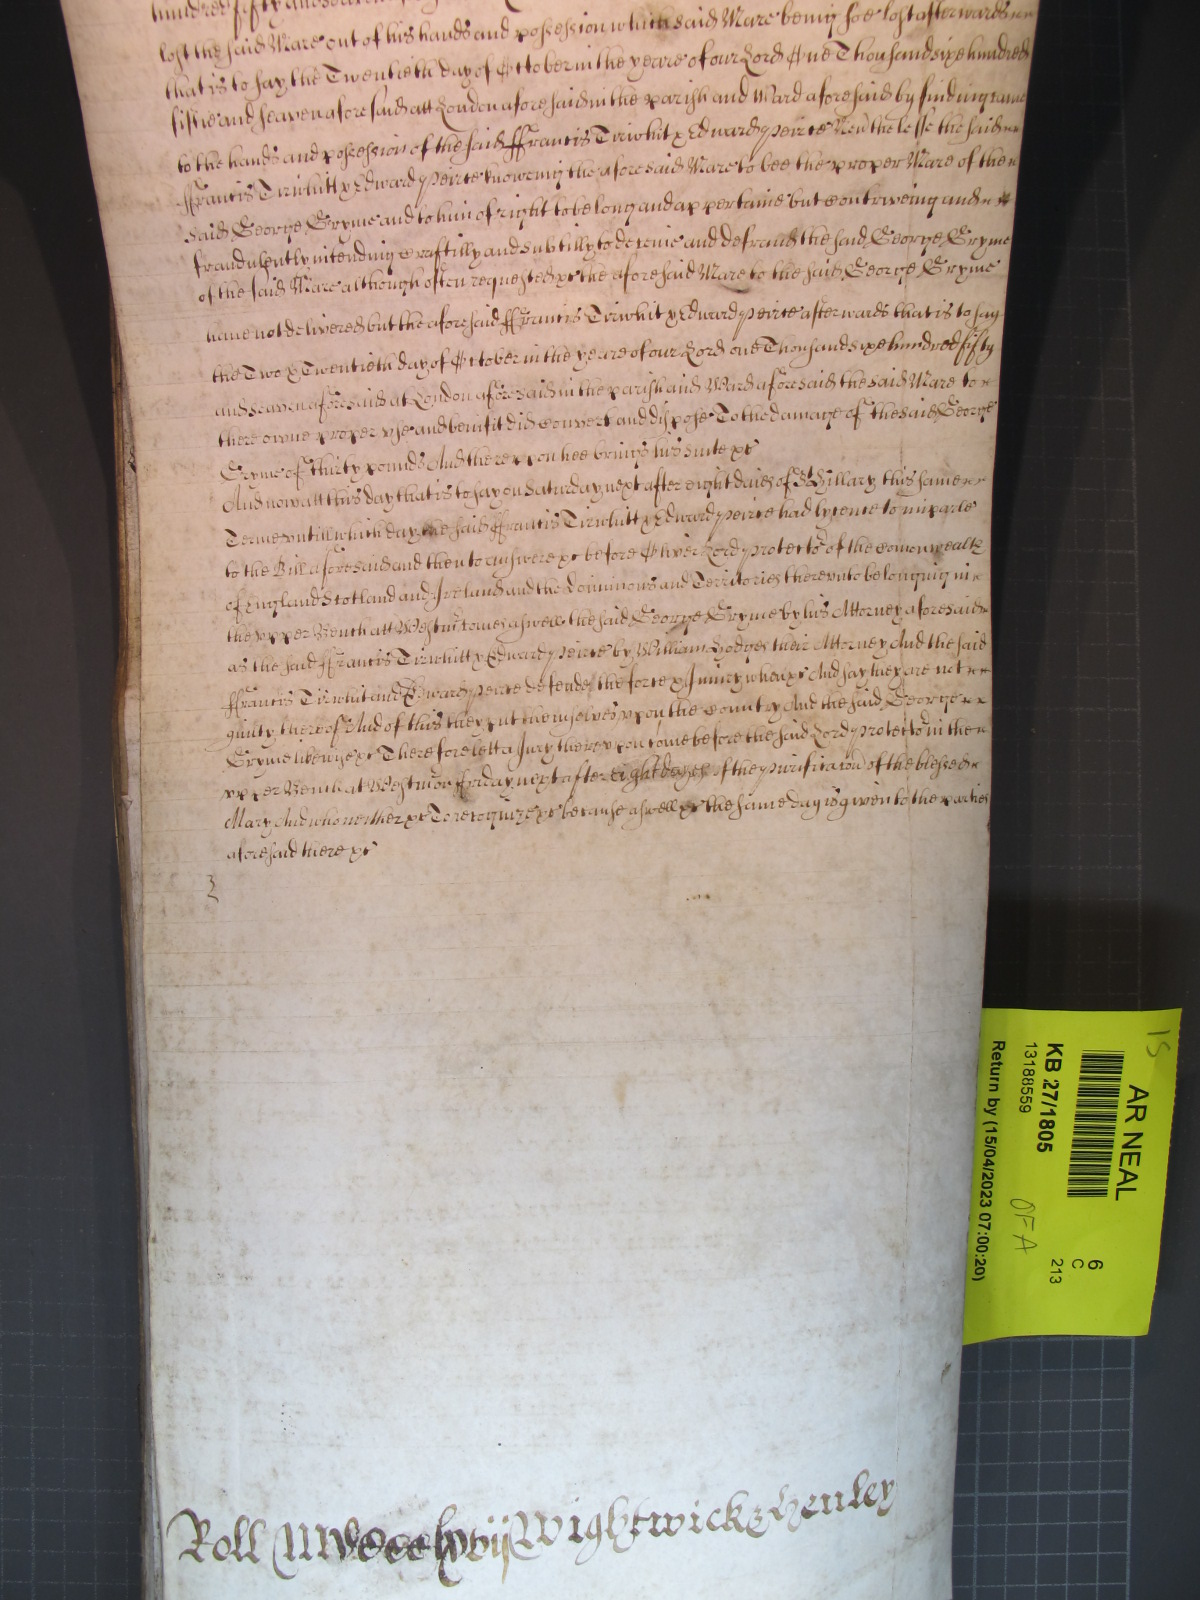 hundred fifty and seaven
lost the said Mare out of his hands and possession which said Mare being soe lost afterwards
that is to say the Twentieth day of October in the yeare of our Lord One Thousand sixe hundred
fiftie and seaven aforesaid att London aforesaid in the parish and Ward aforesaid by finding came
to the hands and possession of the said ffrancis Tirwhit & Edward Peirce Neverthelesse the said
ffrancis Tirwhitt & Edward Peirce knoweing the aforesaid Mare to bee the proper Mare of the
said George Gryme and to him of right to belong and appertaine but contriveing and
fraudulently intending craftilly and subtilly to deceive and defraud the said George Gryme
of the said Mare although often requested &c the aforesaid Mare to the said George Gryme
have not delivered but the aforesaid ffrancis Tirwhit & Edward Peirce afterwards that is to say
the Two & Twentieth day of October in the yeare of our Lord one Thousand sixe hundred fifty
and seaven aforesaid at London aforesaid in the parish and Ward aforesaid the said Mare to
there owne proper use and benifit did convert and dispose To the damage of the said George
Gryme of thirty pounds And thereupon hee brings his suite &c
And now att this day that is to say on Saturday next after eight daies of St Hillary this same
Terme untill which day the said ffrancis Tirwhitt & Edward Peirce had lycence to imparle
to the Bill aforesaid and then to answere &c before Oliver Lord Protector of the comonwealth
of England Scotland and Ireland and the Dominions and Territories thereunto belonging in
the upper Bench att Westmr comes aswell the said George Gryme by his Attorney aforesaid
as the said ffrancis Tirwhitt & Edward Peirce by William Hodges their Attorney And the said
ffrancis Tirwhit and Edward Peirce defende the force & Iniury when &c And say they are not
guilty thereof And of this they put themselves upon the country And the said George
Gryme likewise &c Therefore lett a Jury thereupon come before the said Lord Protector in the
upper Bench at Westmr on ffriday next after eight dayes of the Purification of the blessed
Mary And who neither &c To recognize &c because aswell &c the same day is given to the parties
aforesaid there &c
Roll Wightwick & Henley
15
AR NEAL
6
C
213
KB 27/1805
13188559
OFA
Return by (15/04/2023 07:00:20)